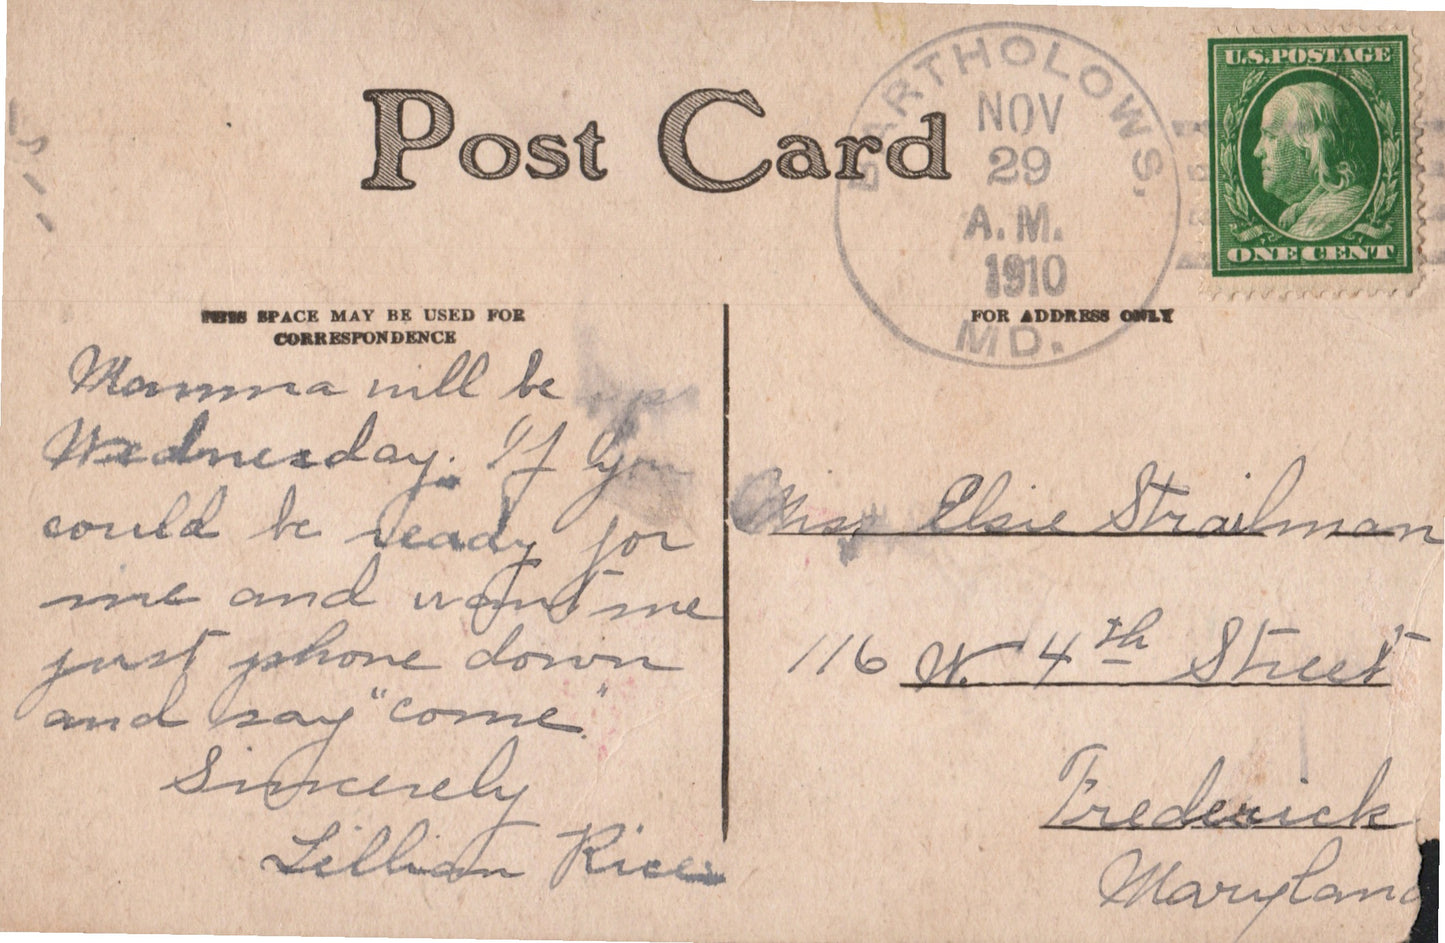 Post Card
BARTHOLOWS,
NOV
29
A.M.
1910
MD.
U.S. POSTAGE
ONE CENT
THIS SPACE MAY BE USED FOR
CORRESPONDENCE
FOR ADDRESS ONLY
Mamma will be up
Wednesday. If you
could be ready for
me and want me
just phone down
and say "come"
Sincerely
Lillian Rice
Miss Elsie Strailman
116 W. 4th Street
Frederick
Maryland